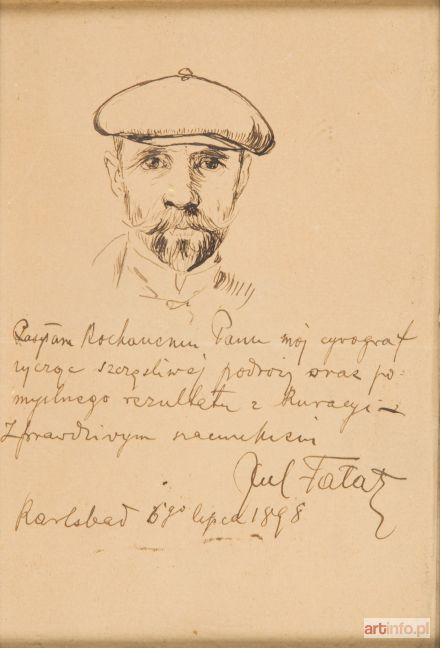 Kochanemu Panu mój cyrograf
życząc szczęśliwej podróży oraz po-
myślnego rezultatu z Kuracyi –
Z prawdziwym szacunkiem
Jul Fałat
Karlsbad 6go lipca 1898
artinfo.pl